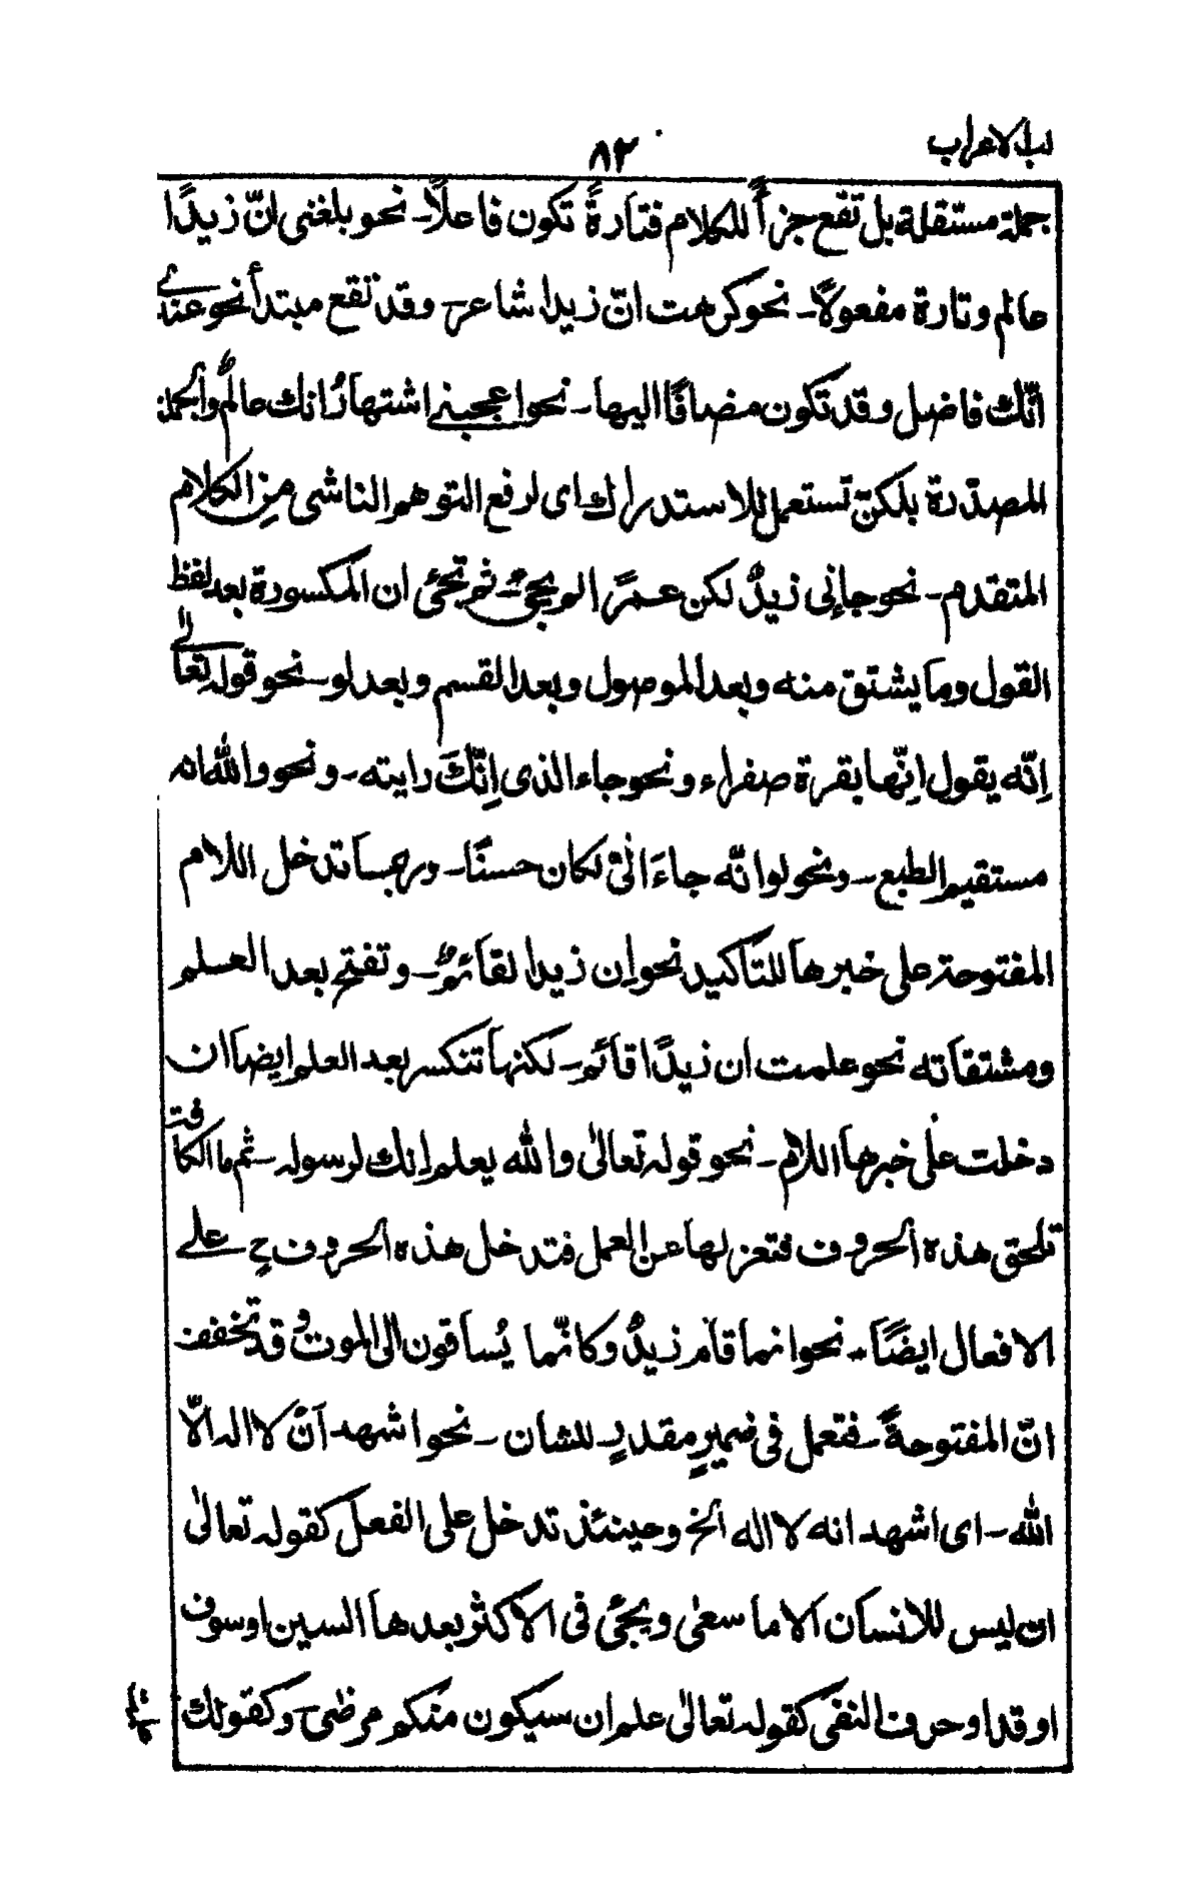 لب الاعراب
٨٢
جملة مستقلة بل تقع جزأً للكلام فتارةً تكون فاعلًا۔ نحو بلغنى انّ زيدًا
عالم وتارة مفعولًا۔ نحو كرهت انّ زيدا شاعر۔ وقد تقع مبتدأ نحو عندى
انّك فاضل وقد تكون مضافًا اليها۔ نحو اعجبنى اشتهارُ انك عالمٌ والجملة
المصدّرة بلكنّ تستعمل للاستدراك اى لرفع التوهم الناشى مِن الكلام
المتقدم۔ نحو جاءنى زيدٌ لكن عمرًا لم يجئ۔ ثم تجئ ان المكسورة بعد لفظ
القول وما يشتق منه وبعد الموصول وبعد القسم وبعد لو۔ نحو قوله تعالى
اِنّه يقول اِنّها بقرة صفراء ونحو جاء الذى اِنّكَ رايته۔ ونحو والله انه
مستقيم الطبع۔ ونحو لو انّه جاءَ الىّ لكان حسنًا۔ وربما تدخل اللام
المفتوحة على خبرها للتاكيد نحو اِن زيدا لقائمٌ۔ وتفتح بعد العلم
ومشتقاته نحو علمت ان زيدًا قائم۔ لكنها تنكسر بعد العلم ايضا ان
دخلت على خبرها اللام۔ نحو قوله تعالى والله يعلم اِنك لرسوله۔ ثم ما الكافة
تلحق هذه الحروف فتعزلها عن العمل فتدخل هذه الحروف ح على
الافعال ايضًا۔ نحو انما قام زيدٌ وكانّما يُساقون الى الموت وقد تخفف
انّ المفتوحة۔ فتعمل فى ضميرٍ مقدرٍ للشان۔ نحو اشهد اَنْ لا اله الّا
الله۔ اى اشهد انه لا اله الخ وحينئذ تدخل على الفعل كقوله تعالى
ان ليس للانسان الا ما سعى ويجئ فى الاكثر بعدها السين او سوف
او قد او حرف النفى كقوله تعالى علم ان سيكون منكم مرضى۔ وكقولك